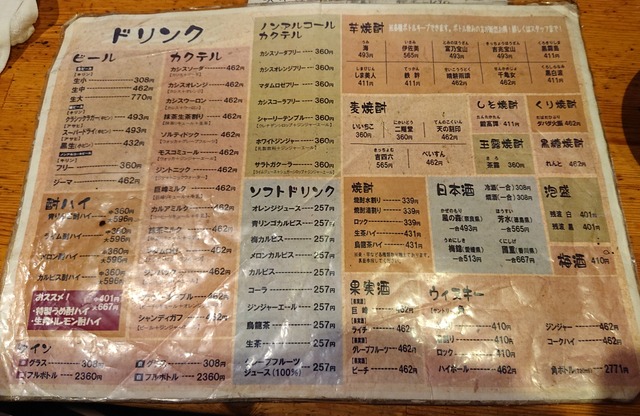 ドリンク
ビール
生小 308円
生中 462円
生大 770円
クラシックラガー(中ビン) 493円
スーパードライ(中ビン) 493円
黒生(小ビン) 432円
フリー 360円
ジーマ 462円
酎ハイ
青りんご酎ハイ 小360円 大596円
ライム酎ハイ 小360円 大596円
メロン酎ハイ 小360円 大596円
カルピス酎ハイ 小360円 大596円
おススメ!
・特製うめ酎ハイ
・生搾りレモン酎ハイ
小401円
大667円
ワイン
グラス 308円
フルボトル 2360円
グラス 308円
フルボトル 2360円
カクテル
カシスソーダ 462円
カシスオレンジ 462円
カシスウーロン 462円
抹茶生茶割り 462円
ソルティドック 462円
モスコミュール 462円
ジントニック 462円
巨峰ミルク 462円
カルアミルク 462円
抹茶ミルク 462円
462円
ジンバック 462円
462円
シャンディガフ 462円
ノンアルコール
カクテル
カシスソーダフリー 360円
カシスオレンジフリー 360円
マダムロゼフリー 360円
カシスコーラフリー 360円
シャーリーテンプル 360円
ホワイトジンジャー 360円
サラトガクーラ 360円
ソフトドリンク
オレンジジュース 257円
青リンゴカルピス 257円
梅カルピス 257円
メロンカルピス 257円
カルピス 257円
コーラ 257円
ジンジャーエール 257円
烏龍茶 257円
生茶 257円
グレープフルーツ
ジュース(100%) 257円
芋焼酎
海 493円
伊佐美 565円
富乃宝山 493円
吉兆宝山 493円
黒霧島 411円
しま美人 411円
411円
晴耕雨讀 462円
千亀女 462円
黒白波 411円
麦焼酎
いいちこ 360円
二階堂 360円
天の刻印 462円
吉四六 565円
ぺいすん 462円
しそ焼酎
鍛高譚 411円
くり焼酎
ダバダ火振 462円
玉露焼酎
茶露 360円
黒糖焼酎
れんと 462円
焼酎
焼酎水割り 339円
焼酎湯割り 339円
ロック 339円
生茶ハイ 431円
烏龍茶ハイ 431円
日本酒
冷酒(一合) 308円
燗酒(一合) 308円
風の森(奈良県) 一合493円
芳水(徳島県) 一合565円
梅錦(愛媛県) 一合513円
國重(香川県) 一合667円
泡盛
残波 白 401円
残波 黒 401円
梅酒 410円
果実酒
巨峰 462円
ライチ 462円
グレープフルーツ 462円
ピーチ 462円
ウィスキー
410円
水割り 410円
ロック 410円
ハイボール 462円
ジンジャー 462円
コークハイ 462円
角ボトル(720ml) 2771円